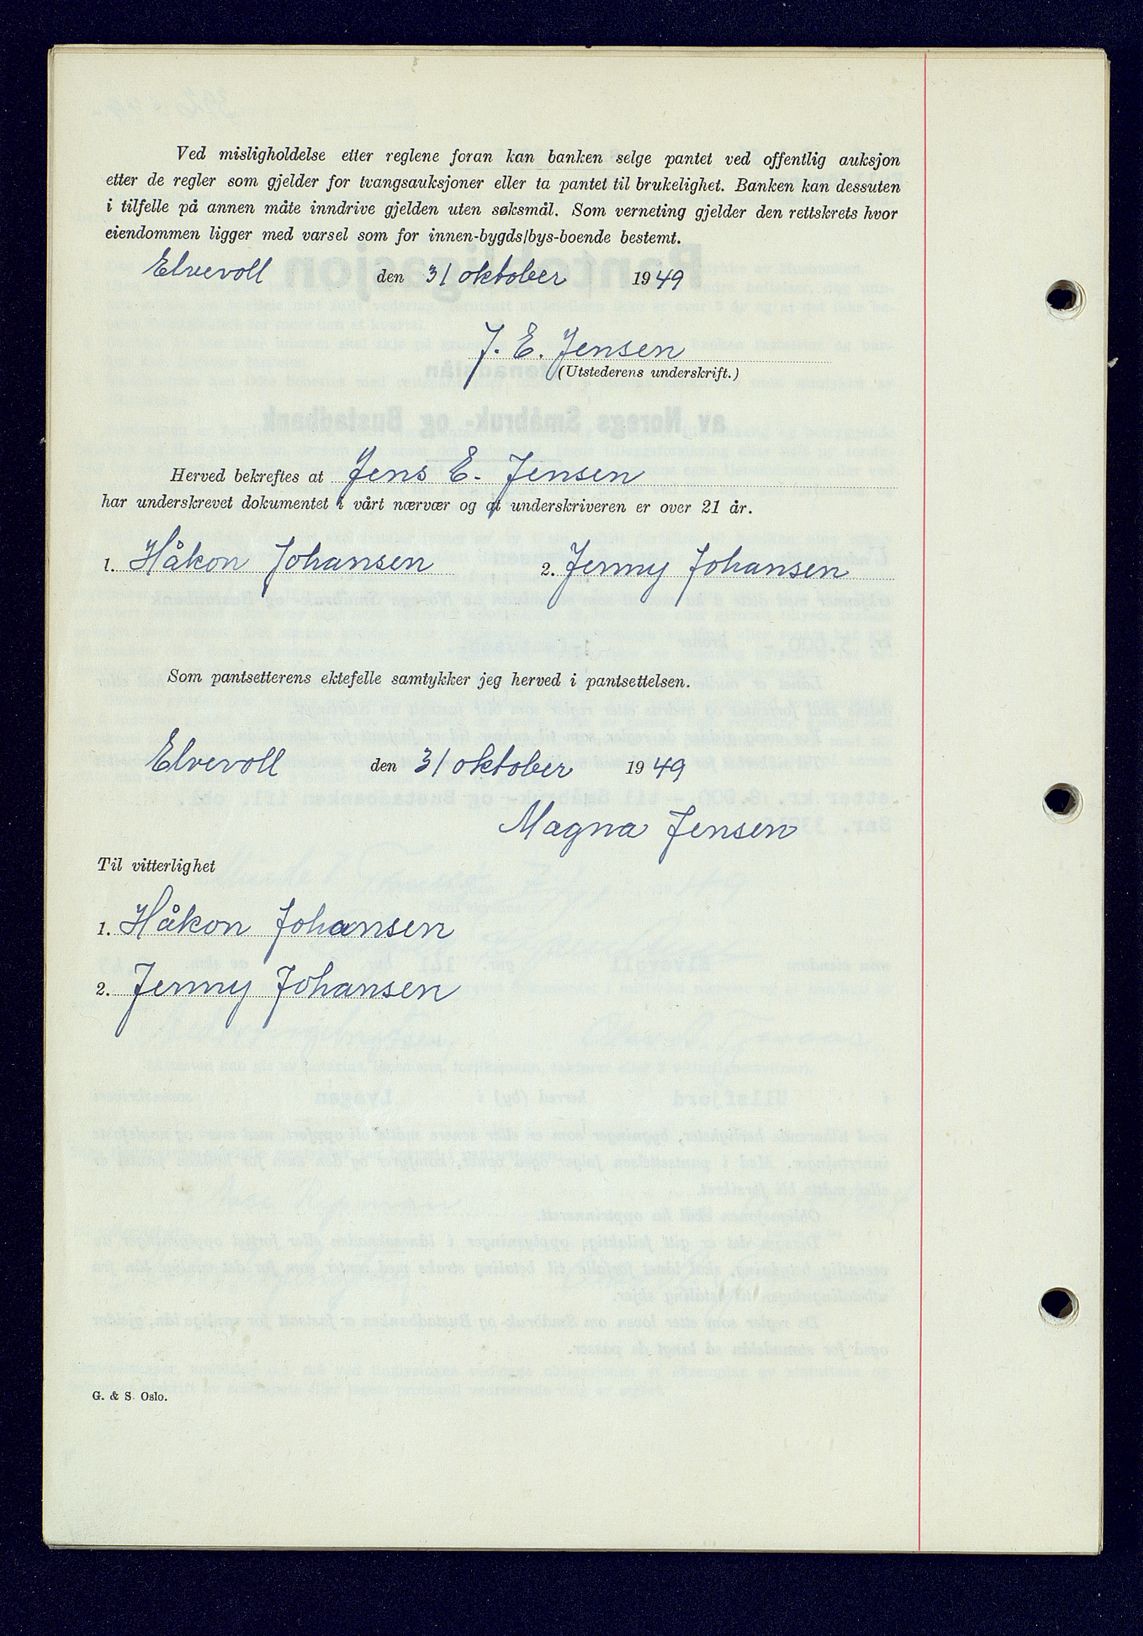 Ved misligholdelse etter reglene foran kan banken selge pantet ved offentlig auksjon
etter de regler som gjelder for tvangsauksjoner eller ta pantet til brukelighet. Banken kan dessuten
i tilfelle på annen måte inndrive gjelden uten søksmål. Som verneting gjelder den rettskrets hvor
eiendommen ligger med varsel som for innen-bygds/bys-boende bestemt.
Elvevoll den 31 oktober 1949
J. E. Jensen
(Utstederens underskrift.)
Herved bekreftes at Jens E. Jensen
har underskrevet dokumentet i vårt nærvær og at underskriveren er over 21 år.
1. Håkon Johansen 2. Jenny Johansen
Som pantsetterens ektefelle samtykker jeg herved i pantsettelsen.
Elvevoll den 31 oktober 1949
Magna Jensen
Til vitterlighet
1. Håkon Johansen
2. Jenny Johansen
G. & S. Oslo.